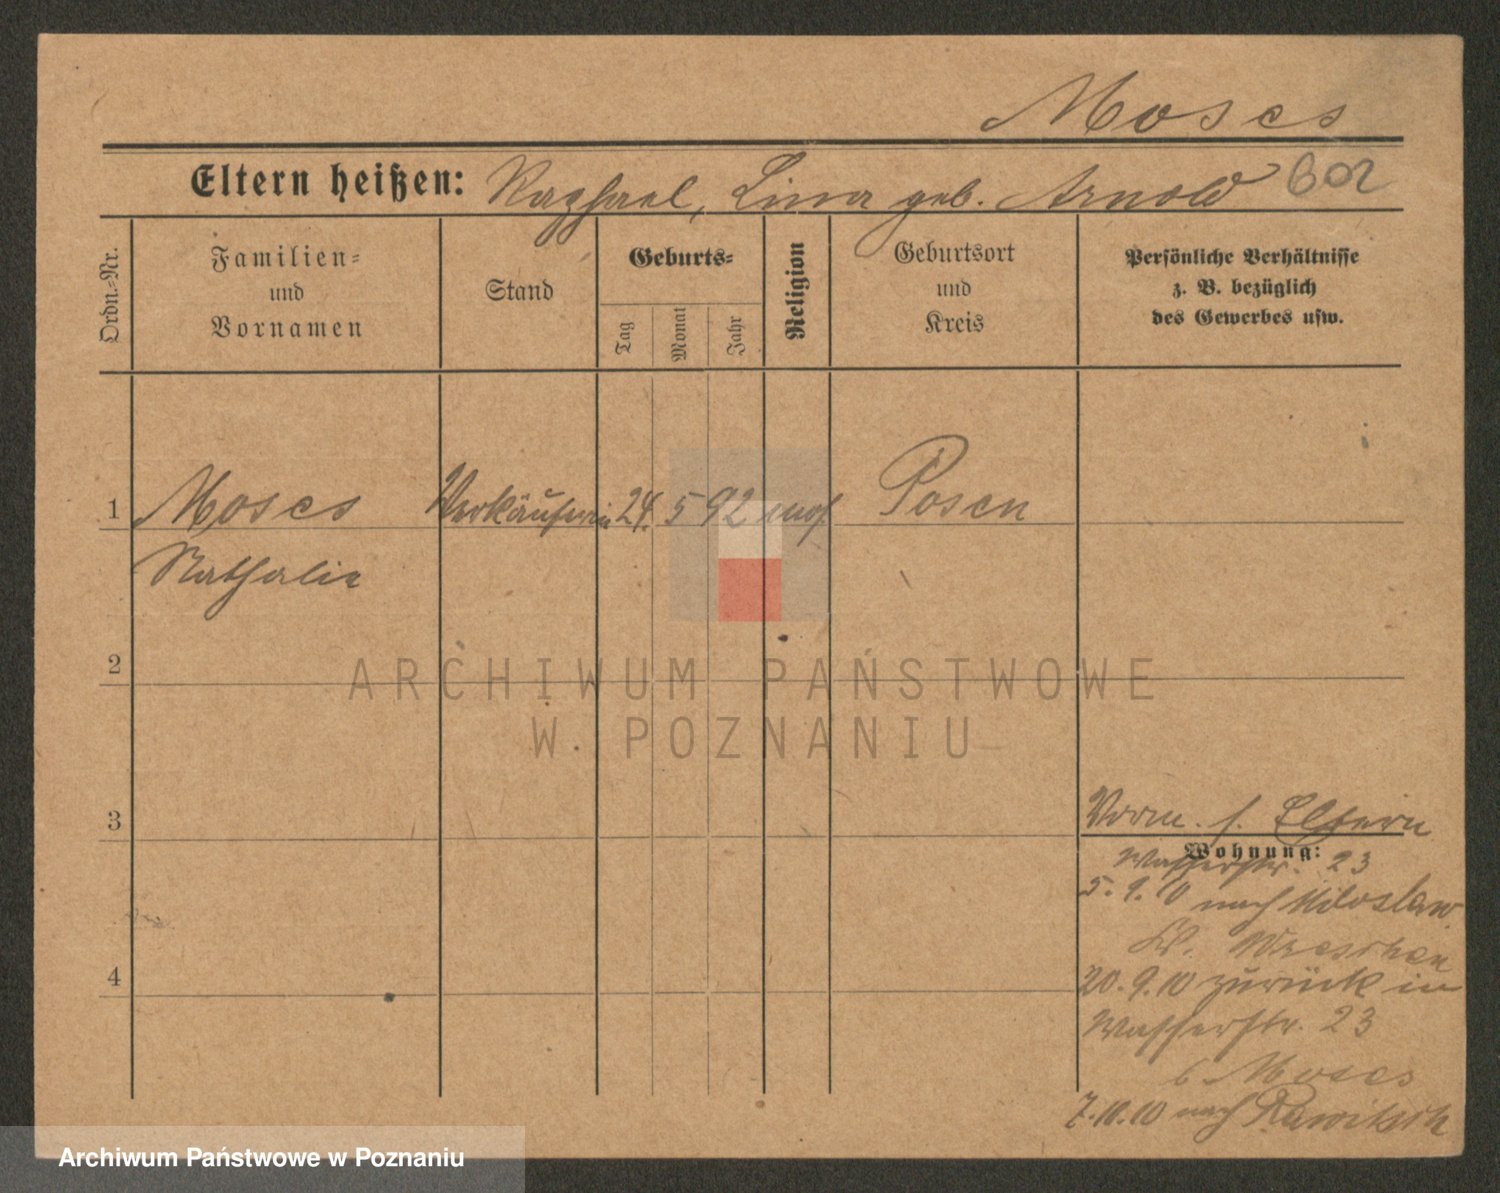 Moses
Eltern heißen: Raphael, Lina geb. Arnold
Ordn.-Nr.
Familien-
und
Vornamen
Stand
Geburts-
Tag
Monat
Jahr
Religion
Geburtsort
und
Kreis
Persönliche Verhältnisse
z. B. bezüglich
des Gewerbes usw.
1 Moses Verkäuferin 24. 5 92 mos. Posen
Nathalie
2
3
Vorm. s. Eltern
Wohnung:
Wasserstr. 23
5. 9. 10 nach Miloslaw
Kr. Wreschen
4
20. 9. 10 zurück in
Wasserstr. 23
b Moses
7. 10. 10 nach Rawitsch
ARCHIWUM PAŃSTWOWE
W POZNANIU
Archiwum Państwowe w Poznaniu